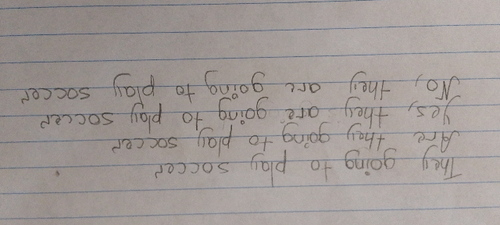 They going to play soccer
Are they going to play soccer
Yes, they are going to play soccer
No, they are going to play soccer